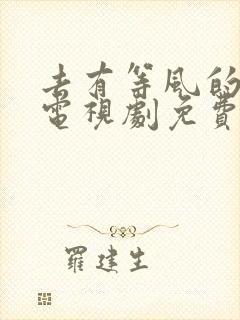 去有等风的
電視劇免費
羅建生